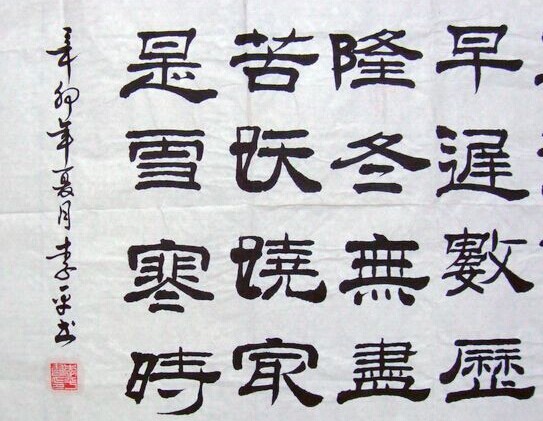 早遲數歷
隆冬無盡
苦妖嬈冣
是雪寒時
辛卯年夏月李平书